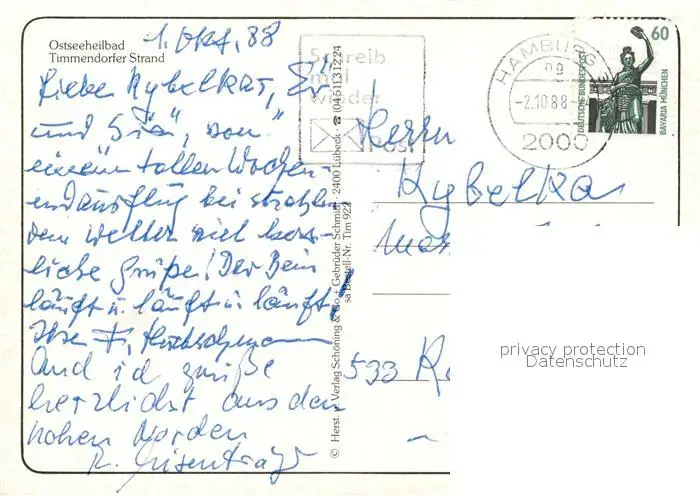 Ostseeheilbad
Timmendorfer Strand
1. Okt. 88
Lieber Kybelkar, "Er"
und "Sie", von
einem tollen Wochen-
endausflug bei strahlen-
dem Wetter viel herz-
liche Grüße! Der Bein
läuft u. läuft u. läuft.
Ihre
Und ich grüße
herzlichst aus dem
hohen Norden
K.
Schreib
mal
wieder
Post
© Herst. u. Verlag Schöning & Co + Gebrüder Schmidt, 2400 Lübeck · ☎ (04 51) 3 12 24
sa Bestell-Nr. Tim 922
HAMBURG
-2.10.88-
2000
60
DEUTSCHE BUNDESPOST
BAVARIA MÜNCHEN
Herrn
Kybelka
533
privacy protection
Datenschutz